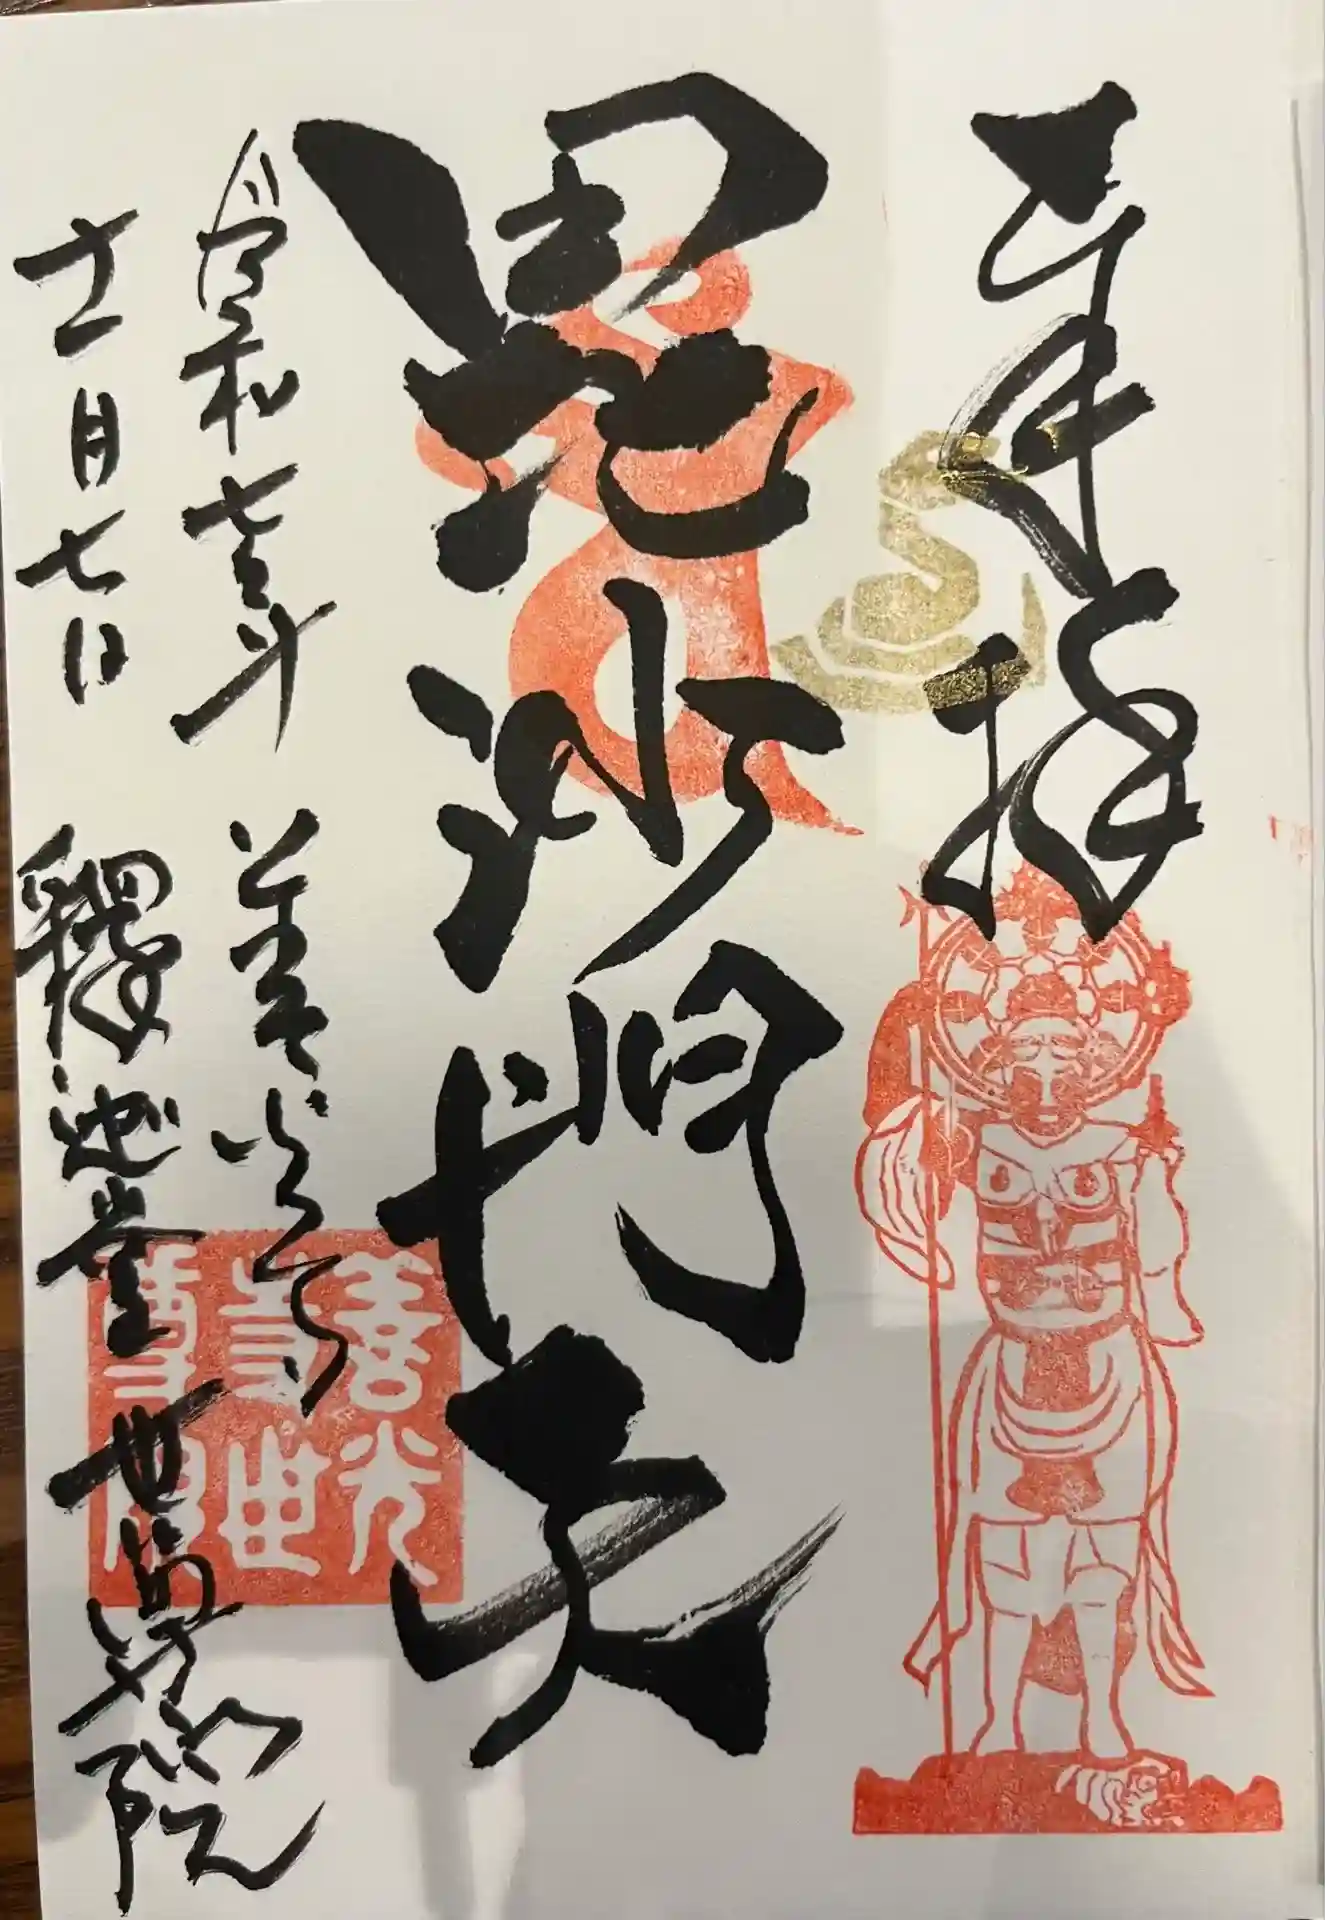 奉拝
毘沙門天
令和七年 善光寺
十一月七日 釋迦堂 世尊院
善光
寺世
尊院